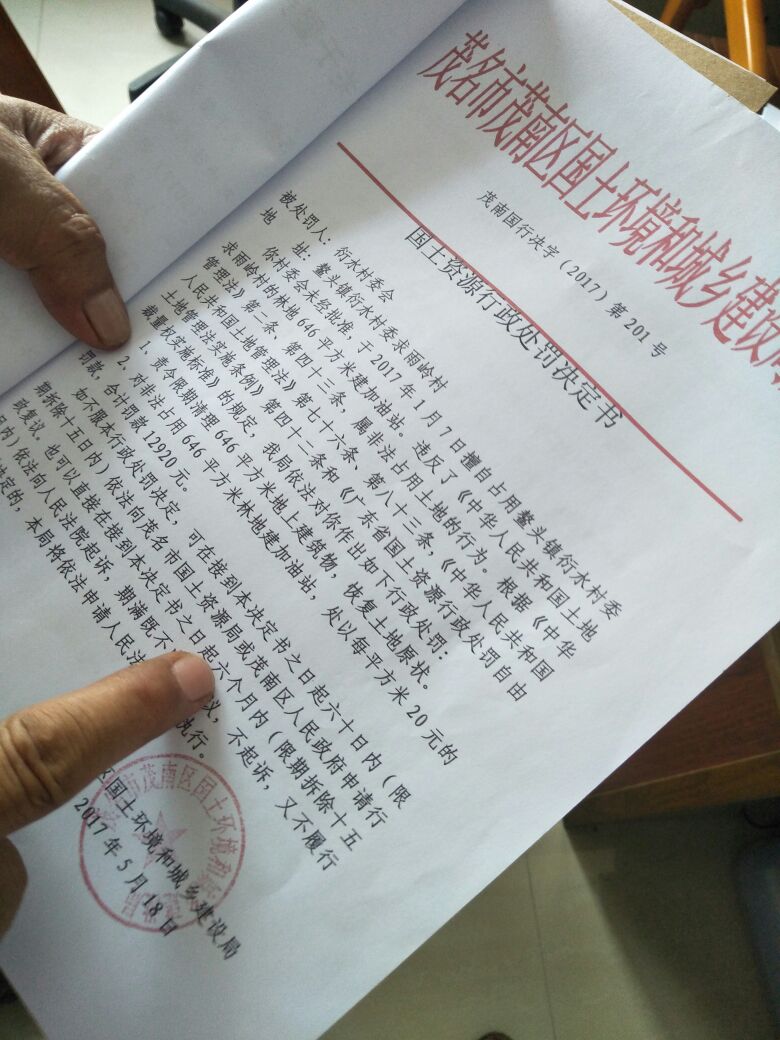 茂名市茂南区国土环境和城乡建设局
茂南国行决字（2017）第 201 号
国土资源行政处罚决定书
被处罚人：衍水村委会
地 址：鳌头镇衍水村委求雨岭村
你村委会未经批准，于 2017 年 1 月 7 日擅自占用鳌头镇衍水村委
求雨岭村的林地 646 平方米建加油站。违反了《中华人民共和国土地
管理法》第二条、第四十三条，属非法占用土地的行为。根据《中华
人民共和国土地管理法》第七十六条、第八十三条，《中华人民共和国
土地管理法实施条例》第四十二条和《广东省国土资源行政处罚自由
裁量权实施标准》的规定，我局依法对你作出如下行政处罚：
1、责令限期清理 646 平方米地上建筑物，恢复土地原状。
2、对非法占用 646 平方米林地建加油站，处以每平方米 20 元的
罚款，合计罚款 12920 元。
如不服本行政处罚决定，可在接到本决定书之日起六十日内（限
期拆除十五日内）依法向茂名市国土资源局或茂南区人民政府申请行
政复议，也可以直接在接到本决定书之日起六个月内（限期拆除十五
日内）依法向人民法院起诉，期满既不 议，不起诉，又不履行
决定的，本局将依法申请人民法 执行。
区国土环境和城乡建设局
2017 年 5 月 18 日
市茂南区国土环境和城